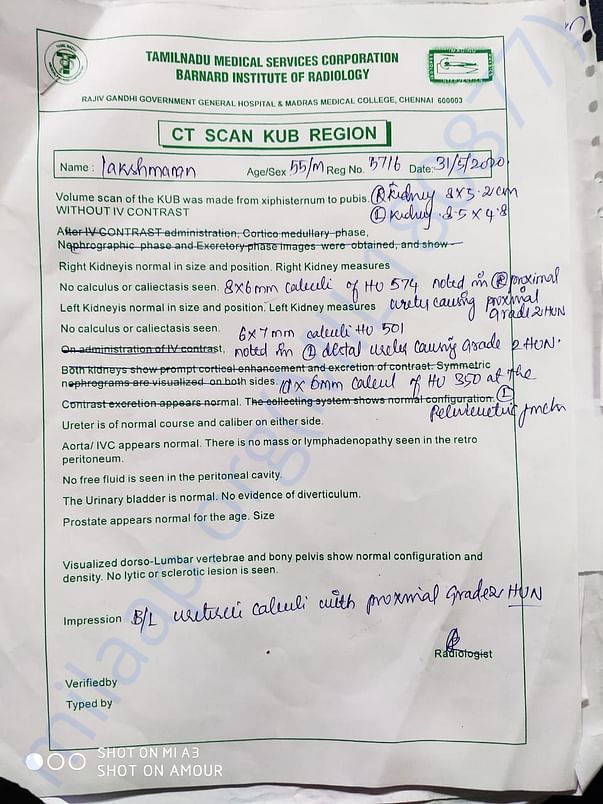 TAMILNADU MEDICAL SERVICES CORPORATION
BARNARD INSTITUTE OF RADIOLOGY
RAJIV GANDHI GOVERNMENT GENERAL HOSPITAL & MADRAS MEDICAL COLLEGE, CHENNAI 600003
CT SCAN KUB REGION
Name : Lakshmanan Age/Sex 55/M Reg No. 3716 Date: 31/5/2020
Volume scan of the KUB was made from xiphisternum to pubis. (R) kidney 8x5.2cm
WITHOUT IV CONTRAST (L) kidney 8.5 x 4.8
After IV CONTRAST administration, Cortico medullary phase,
Nephrographic phase and Excretory phase images were obtained, and show
Right Kidneyis normal in size and position. Right Kidney measures
No calculus or caliectasis seen. 8x6mm calculi of HU 574 noted in (R) proximal
Left Kidneyis normal in size and position. Left Kidney measures ureter causing proximal
grade 2 HUN
No calculus or caliectasis seen. 6x7mm calculi HU 501
On administration of IV contrast, noted in (L) distal ureter causing grade 2 HUN.
Both kidneys show prompt cortical enhancement and excretion of contrast. Symmetric
nephrograms are visualized on both sides. 10 x 6mm calculi of HU 350 at the
Contrast excretion appears normal. The collecting system shows normal configuration. (L)
Pelviureteric junctn
Ureter is of normal course and caliber on either side.
Aorta/ IVC appears normal. There is no mass or lymphadenopathy seen in the retro
peritoneum.
No free fluid is seen in the peritoneal cavity.
The Urinary bladder is normal. No evidence of diverticulum.
Prostate appears normal for the age. Size
Visualized dorso-Lumbar vertebrae and bony pelvis show normal configuration and
density. No lytic or sclerotic lesion is seen.
Impression B/L ureteric calculi with proximal grade 2 HUN
Radiologist
Verifiedby
Typed by
SHOT ON MI A3
SHOT ON AMOUR